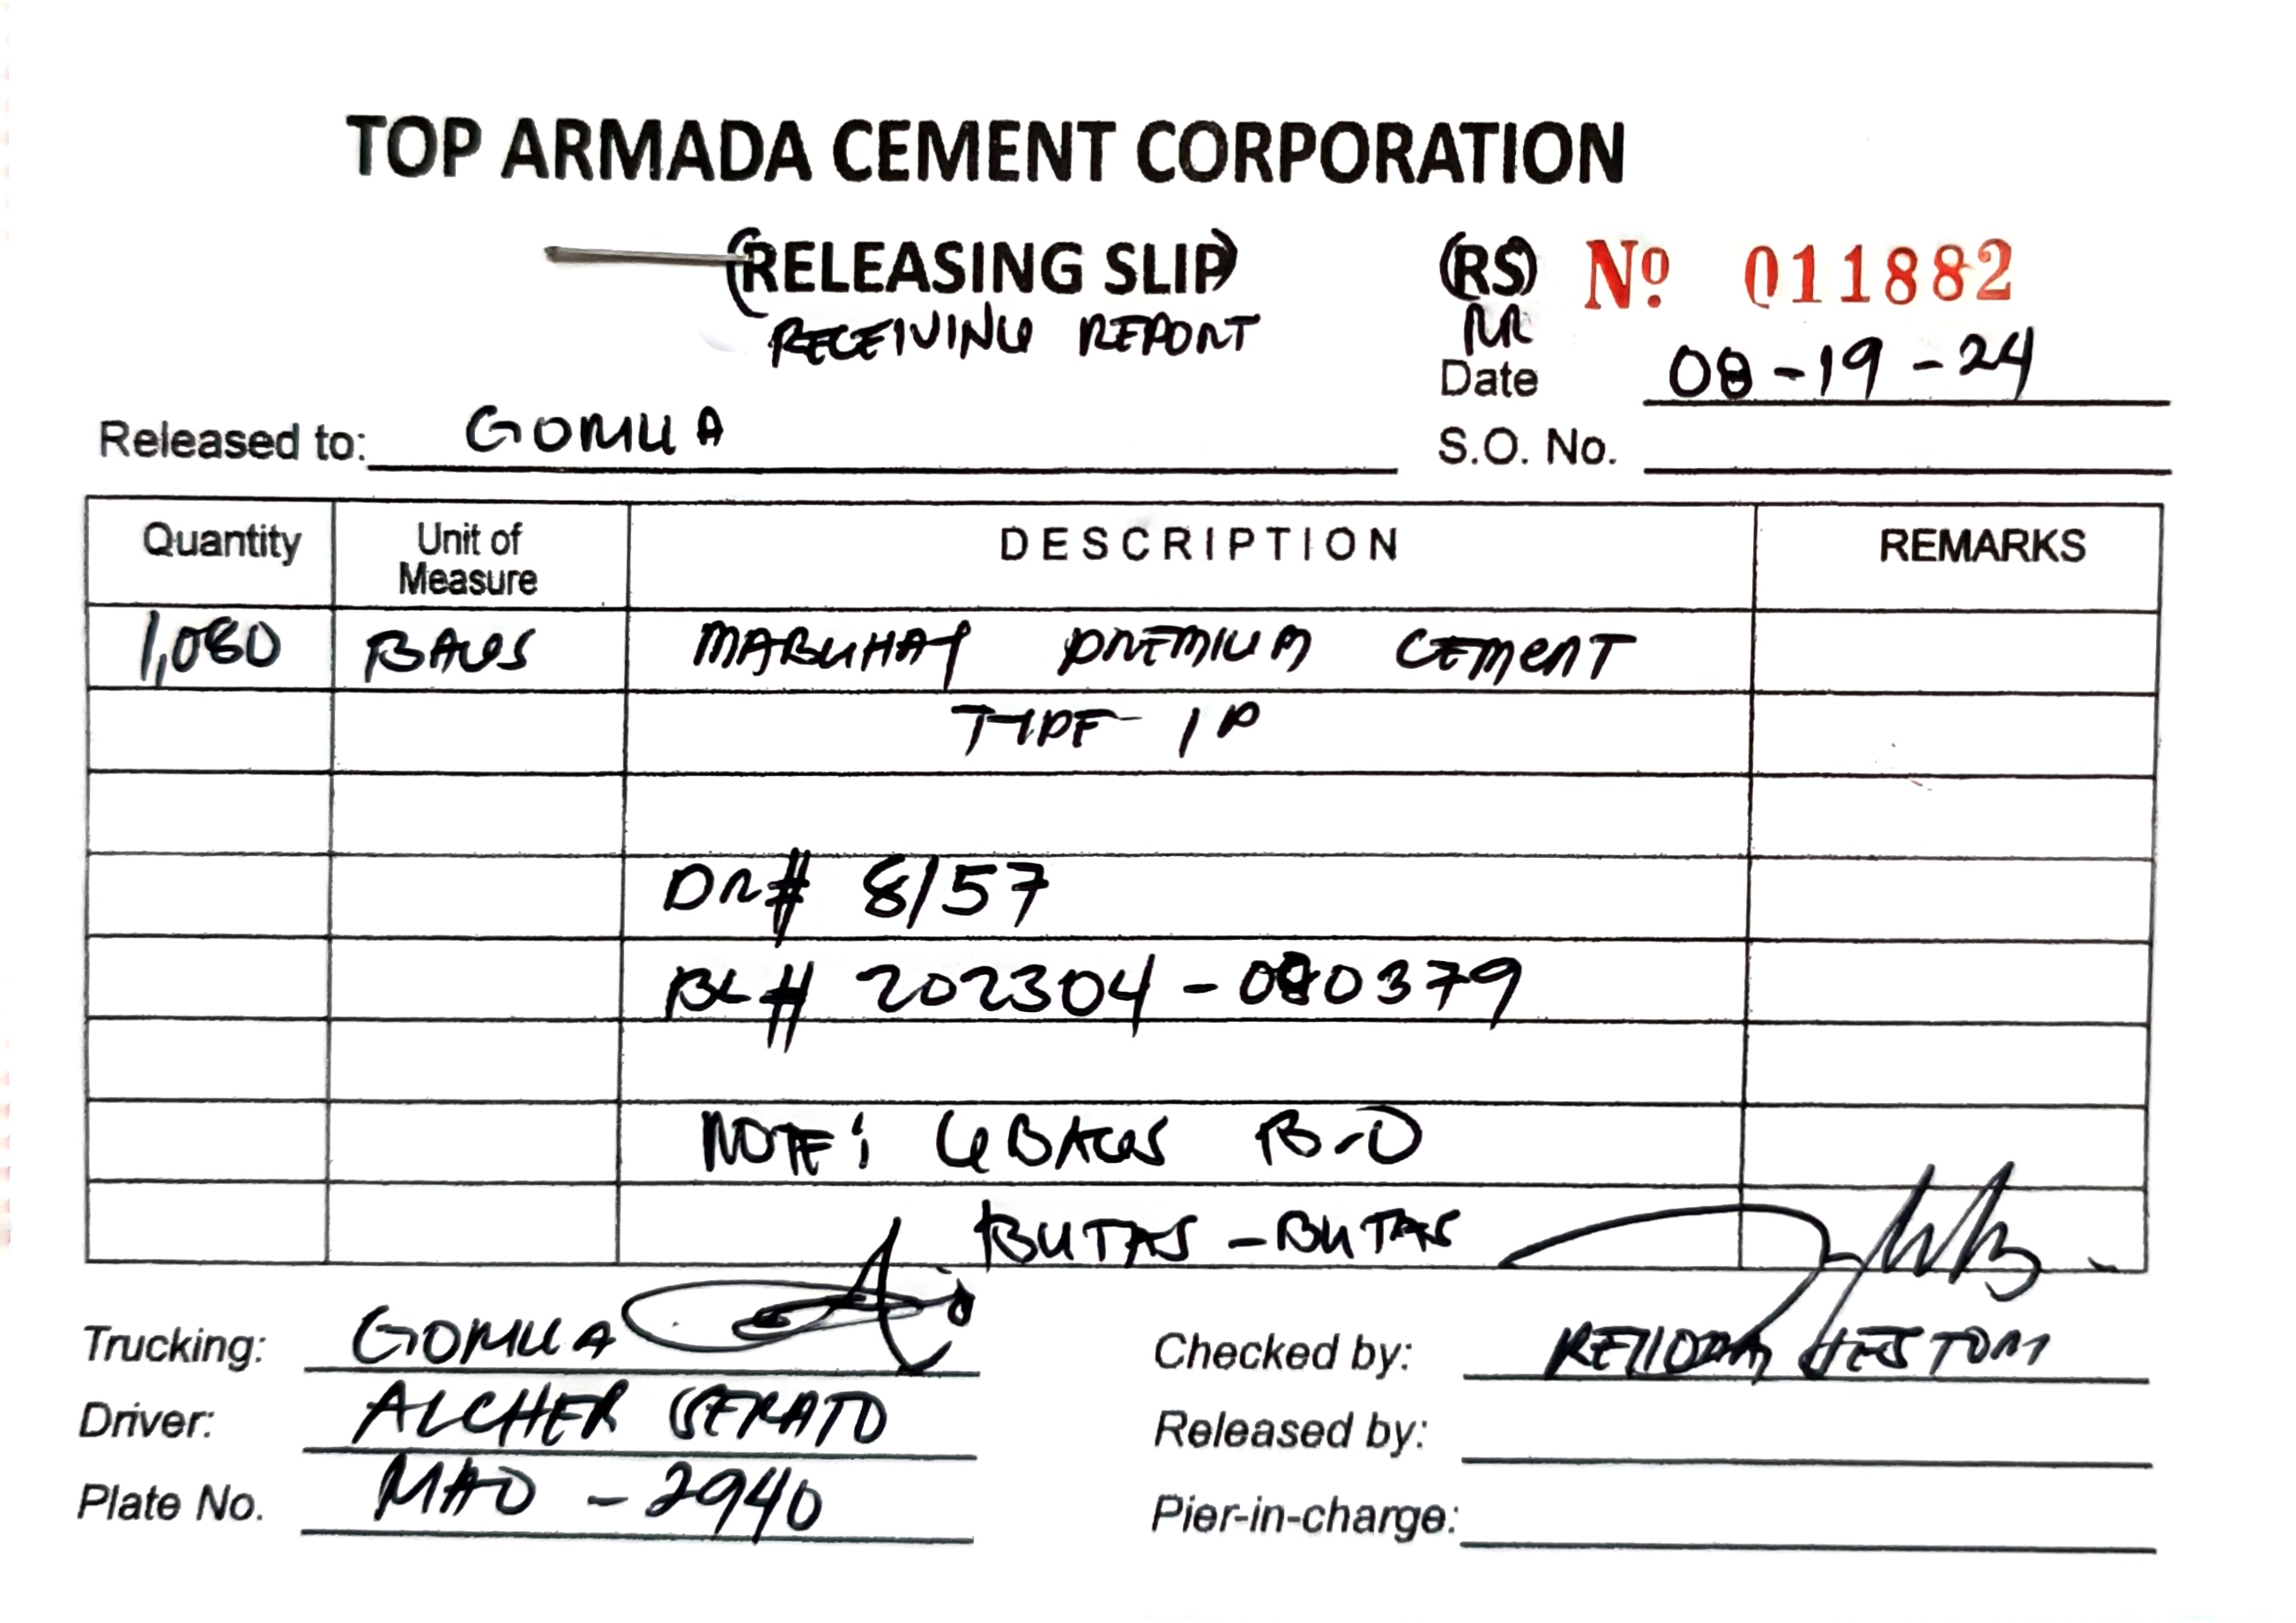 TOP ARMADA CEMENT CORPORATION
(RELEASING SLIP) (RS) Nº 011882
RECEIVING REPORT RR
Date 08-19-24
Released to: S.O. No.
Quantity Unit of Measure DESCRIPTION REMARKS
1,080 BAGS MABUHAY PREMIUM CEMENT
TYPE 1P
DR# 8157
BL# 202304-080379
NOTE: BAGS B-O
BUTAS-BUTAS
Trucking: Checked by:
Driver: ALCHER SERATO Released by:
Plate No. MAO-2940 Pier-in-charge: